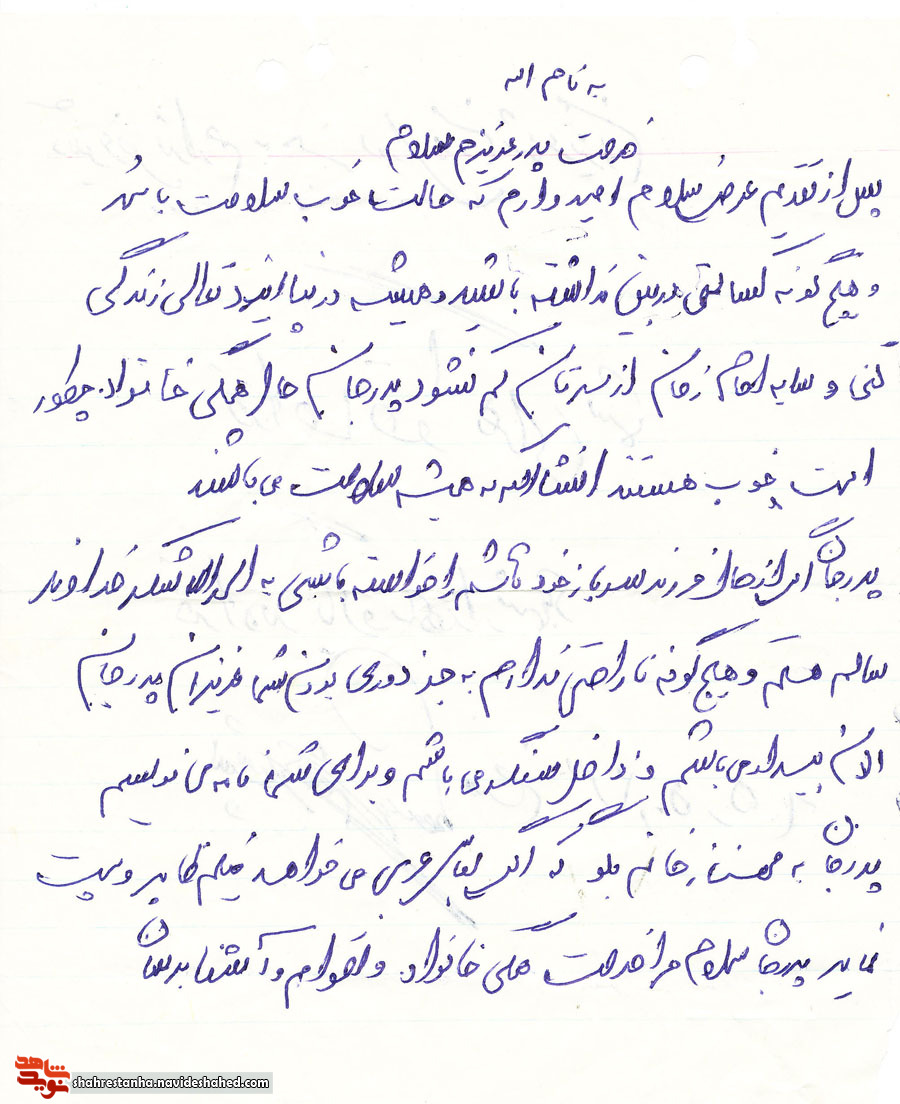 به نام الله
خدمت پدر عزیزم سلام
پس از تقدیم عرض سلام امیدوارم که حالت خوب سلامت باشد
و هیچ گونه کسالتی در بین نداشته باشید و همیشه در پناه ایزد تعالی زندگی
کنی و سایه امام زمان از سرتان کم نشود پدر جان حال همگی خانواده چطور
است خوب هستند انشاالله که همیشه سلامت می باشند
پدر جان اگر از حال فرزند سرباز خود تاشم را خواسته باشی به الحمدالله شکر خداوند
سالم هستم و هیچ گونه ناراحتی ندارم به جز دوری بودن شما عزیزان پدر جان
الان بیدار می باشم و داخل سنگر می باشم و برای شما نامه می نویسم
پدر جان به خانم بگو که اگر لباس عربی می خواهد خیلم ظاهر و پست
نماید پدر جان سلام مرا خدمت همگی خانواده و اقوام و آشنا برسان
نوید شاهد
shahrestanha.navideshahed.com